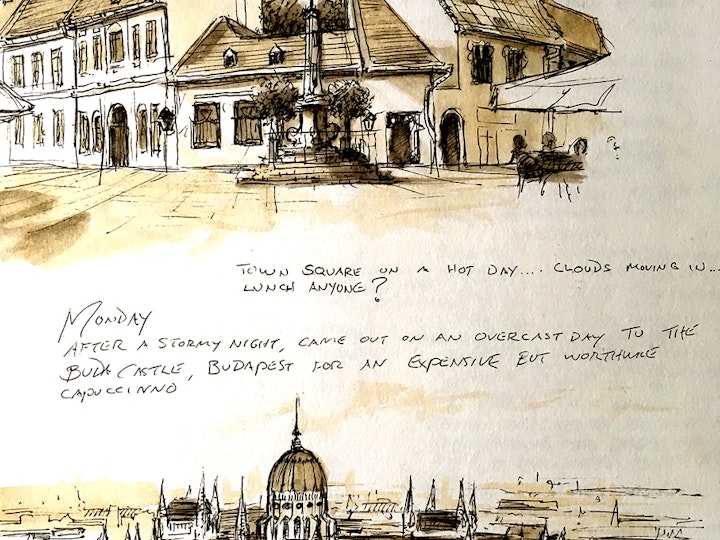 TOWN SQUARE ON A HOT DAY.... CLOUDS MOVING IN...
LUNCH ANYONE?
MONDAY
AFTER A STORMY NIGHT, CAME OUT ON AN OVERCAST DAY TO THE
BUDA CASTLE, BUDAPEST FOR AN EXPENSIVE BUT WORTHWHILE
CAPUCCINNO